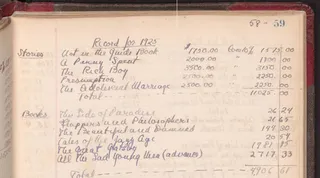 58 - 59
Record for 1925
Stories Not in the Guide Book $1750.00 Com 10% 1575 00
A Penny Spent 2000.00 " 1800 00
The Rich Boy 3500.00 " 3150 00
Presumption 2500.00 " 2250 00
The Adolescent Marriage 2500.00 " 2250 00
Total 11025 00
Books This Side of Paradise 26 24
Flappers and Philosophers 21 65
The Beautiful and Damned
Tales of the Jazz Age
The Great Gatsby
All the Sad Young Men (advance) 2717 33
Total 4906 61